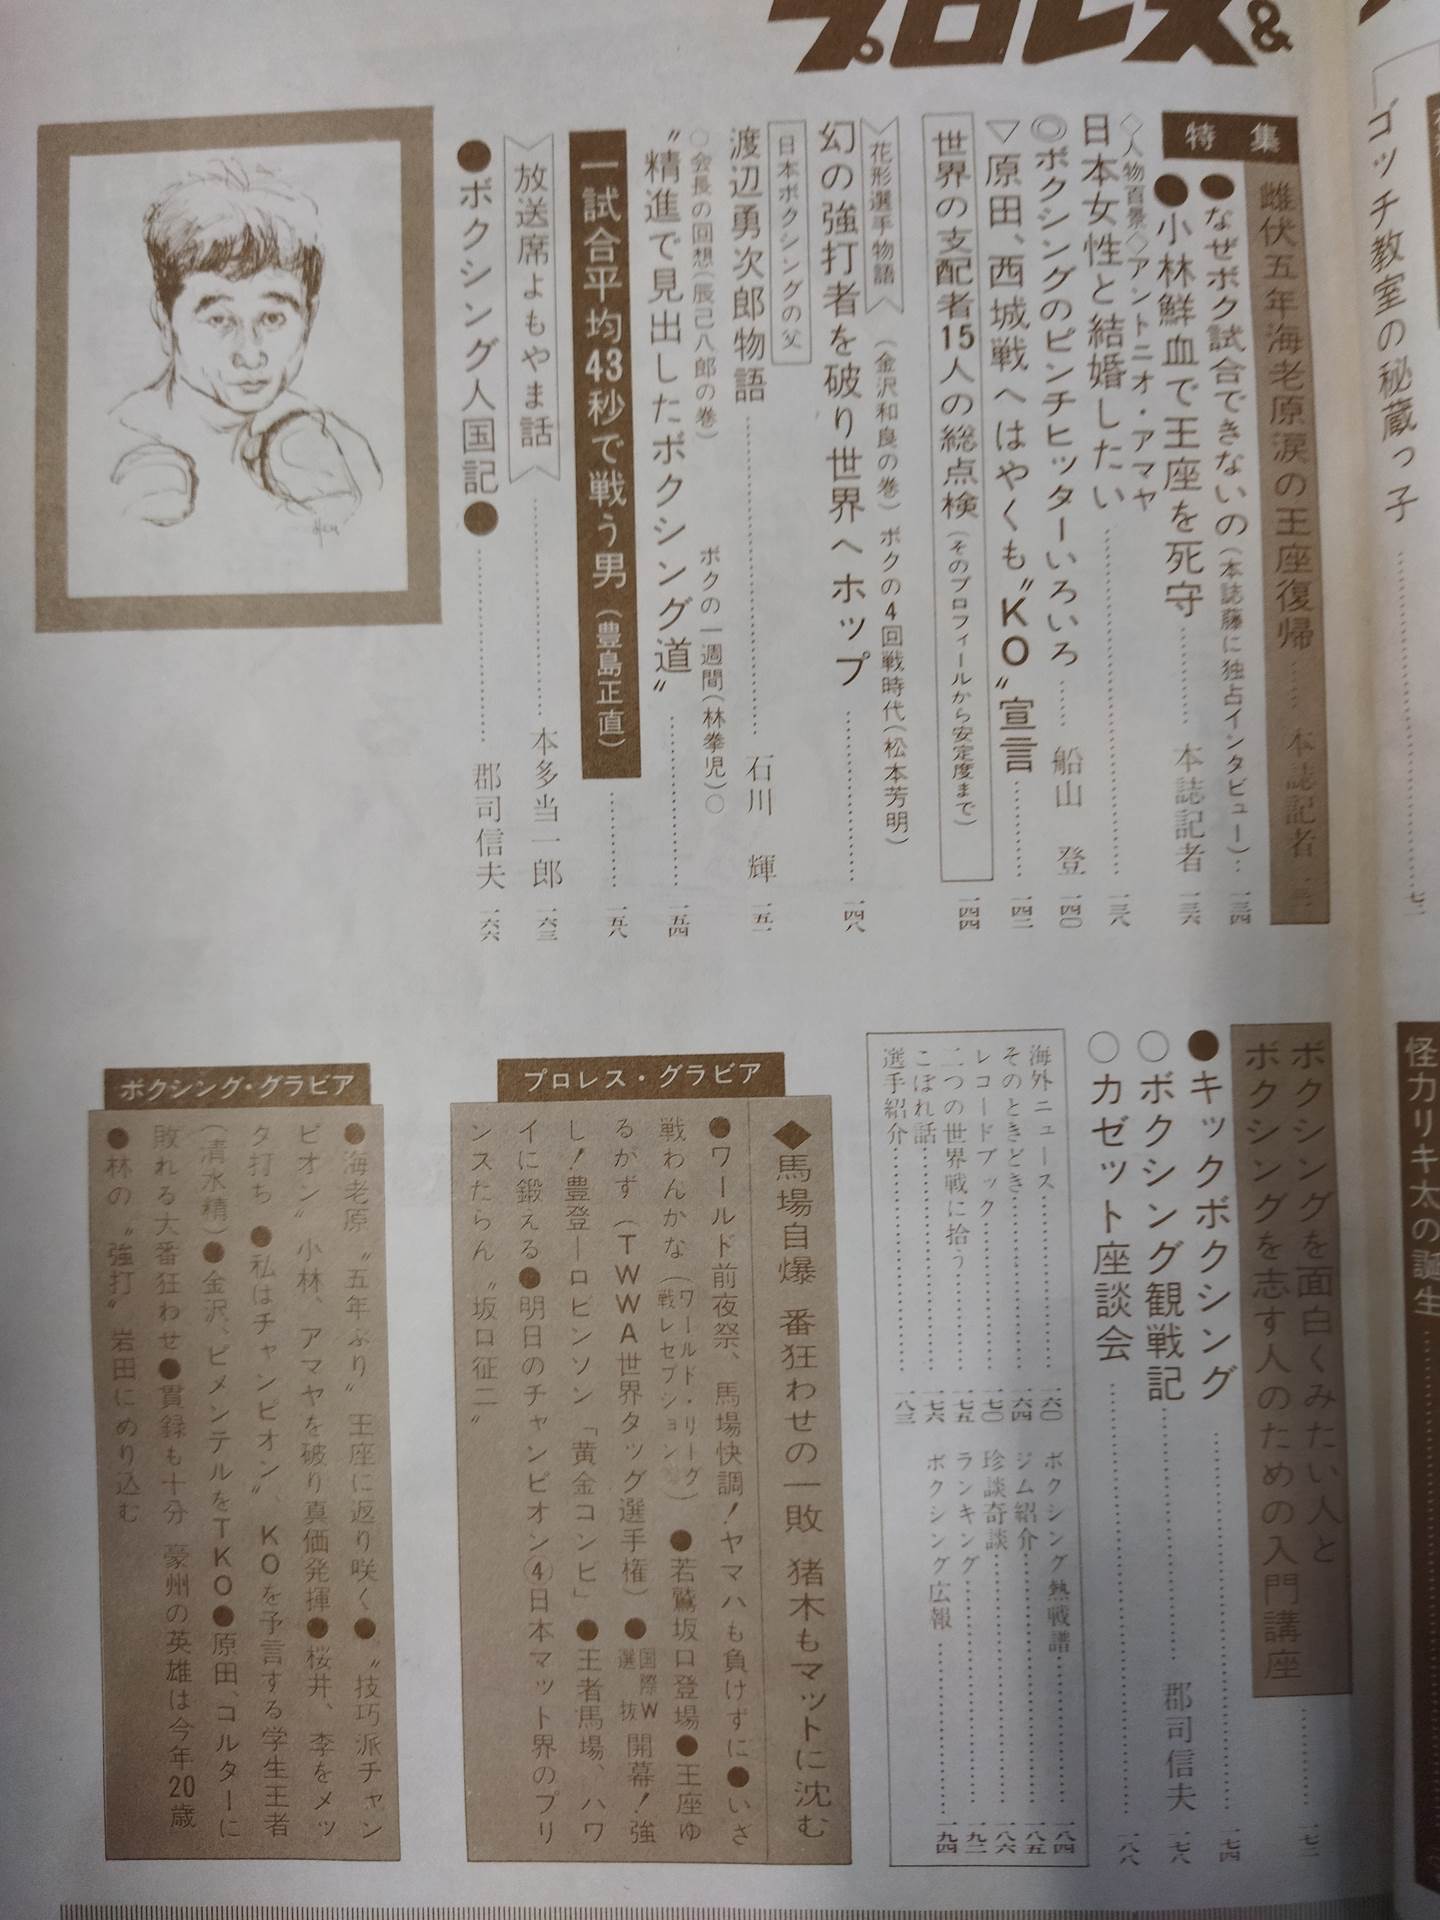 プロレス&
ゴッチ教室の秘蔵っ子
怪力リキ太の誕生
特集
雌伏五年海老原涙の王座復帰……本誌記者
●なぜボク試合できないの(本誌藤に独占インタビュー)…一三四
●小林鮮血で王座を死守………本誌記者 一三六
◇人物百景◇アントニオ・アマヤ
日本女性と結婚したい………一三八
◎ボクシングのピンチヒッターいろいろ……船山 登 一四〇
▽原田、西城戦へはやくも〝KO〟宣言………一四二
世界の支配者15人の総点検(そのプロフィールから安定度まで) 一四四
花形選手物語 (金沢和良の巻) ボクの4回戦時代(松本芳明)
幻の強打者を破り世界へホップ………一四八
日本ボクシングの父
渡辺勇次郎物語………石川 輝 一五一
○会長の回想(辰己八郎の巻) ボクの一週間(林拳児)○
〝精進で見出したボクシング道〟………一五四
一試合平均43秒で戦う男(豊島正直)………一五八
放送席よもやま話………本多当一郎 一六三
●ボクシング人国記●………郡司信夫 一六六
ボクシングを面白くみたい人と
ボクシングを志す人のための入門講座………一七二
●キックボクシング………一七四
○ボクシング観戦記………郡司信夫 一七八
○カゼット座談会………一八八
海外ニュース………一六〇
そのときどき………一六四
レコードブック………一七〇
二つの世界戦に拾う………一七五
こぼれ話………一七六
選手紹介………一八三
ボクシング熱戦譜………一八四
ジム紹介………一八五
珍談奇談………一八六
ランキング………一九二
ボクシング広報………一九四
プロレス・グラビア
◆馬場自爆 番狂わせの一敗 猪木もマットに沈む
●ワールド前夜祭、馬場快調!ヤマハも負けずに●いざ
戦わんかな(ワールド・リーグ戦レセプション)●若鷲坂口登場●王座ゆ
るがず(TWWA世界タッグ選手権)●国際W選抜開幕!強
し!豊登ーロビンソン「黄金コンビ」●王者馬場、ハワ
イに鍛える●明日のチャンピオン④日本マット界のプリ
ンスたらん〝坂口征二〟
ボクシング・グラビア
●海老原〝五年ぶり〟王座に返り咲く●〝技巧派チャン
ピオン〟小林、アマヤを破り真価発揮●桜井、李をメッ
タ打ち●私はチャンピオン〟、KOを予言する学生王者
(清水精)●金沢、ピメンテルをTKO●原田、コルターに
敗れる大番狂わせ●貫録も十分 豪州の英雄は今年20歳
●林の〝強打〟岩田にめり込む